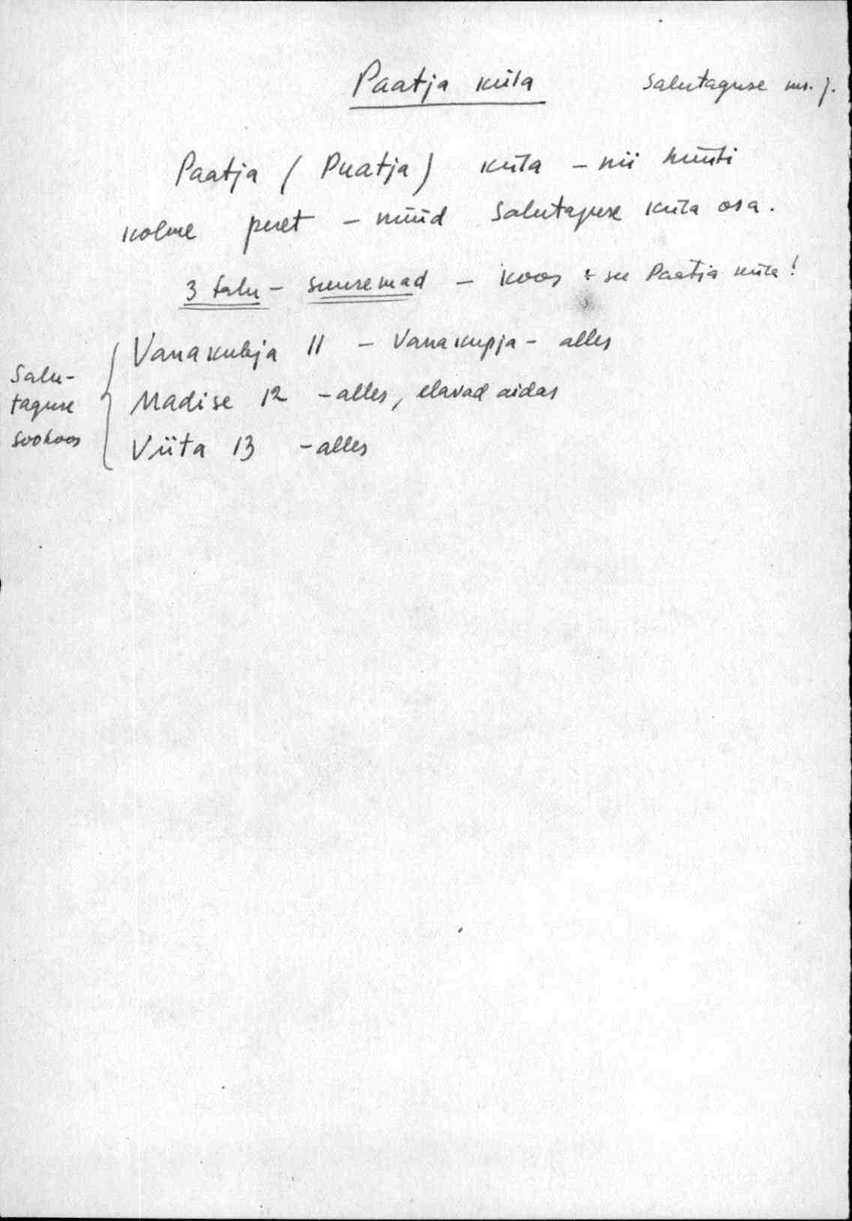 Paatja küla Salutaguse
Paatja (Puatja) küla – nii hüüti
kolme peret – nüüd Salutaguse küla osa.
3 talu – suuremad – koos see Paatja küla!
Vanakubja 11 – Vanakupja – alles
Salu-
taguse
sookoos
Madise 12 – alles, elavad aidas
Viita 13 – alles